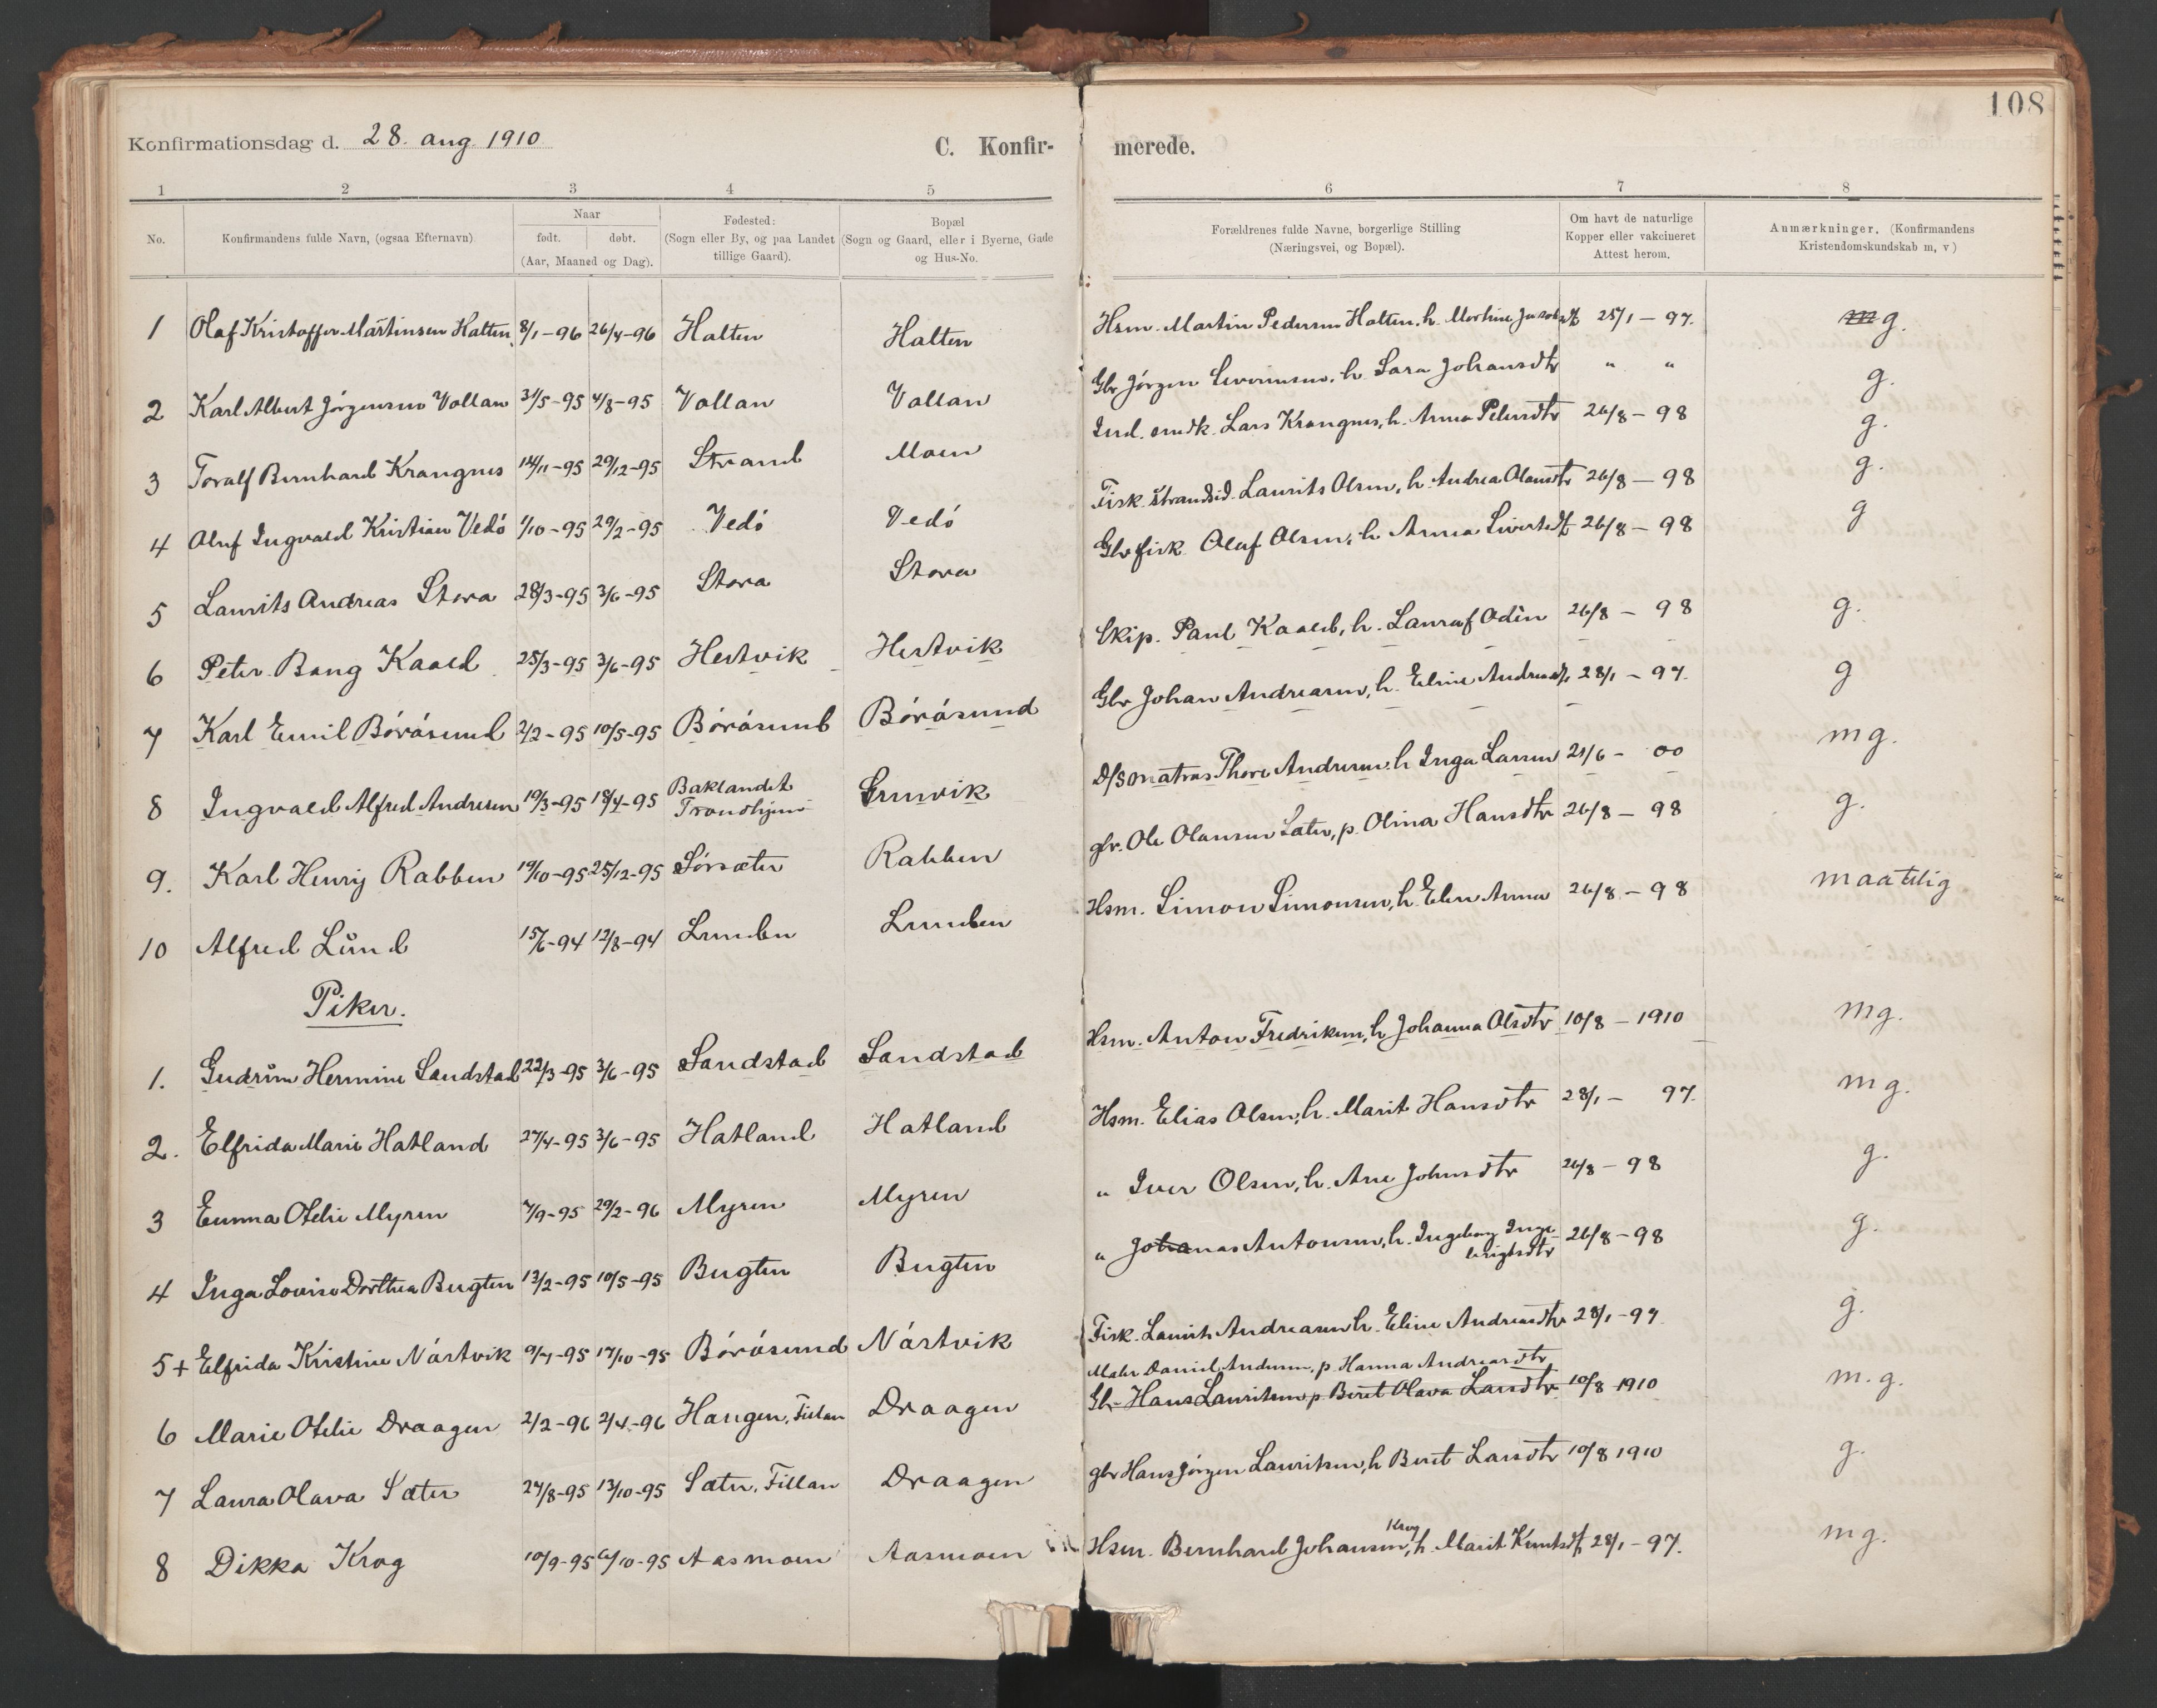 108
Konfirmationsdag d. 28. aug. 1910
C. Konfir- merede.
1 2 3 4 5 6 7 8
No. Konfirmandens fulde Navn, (ogsaa Efternavn) Naar født. døbt. (Aar, Maaned og Dag). Fødested: (Sogn eller By, og paa Landet tillige Gaard). Bopæl (Sogn og Gaard, eller i Byerne, Gade og Hus-No. Forældrenes fulde Navne, borgerlige Stilling (Næringsvei, og Bopæl). Om havt de naturlige Kopper eller vakcineret Attest herom. Anmærkninger. (Konfirmandens Kristendomskundskab m, v)
1 Olaf Kristoffer Martinsen Halten 8/1-96 26/4-96 Halten Halten Hsm. Martin Pedersen Halten, h. 25/1-97. g.
2 Karl Albert Jørgensen Vollan 31/5-95 4/8-95 Vollan Vollan Gbr Jørgen h. Sara Johansdtr " " g.
3 Toralf Bernhard Krangnes 14/11-95 29/12-95 Strand Moen Lars Krangnes, h. Anna Petersdtr 26/8-98 g.
4 Oluf Ingvald Kristian Vedø 1/10-95 29/2-95 Vedø Vedø Fisk. strandsid. Laurits Olsen, h. Andrea Olausdtr 26/8-98 g.
5 Laurits Andreas Stora 28/3-95 3/6-95 Stora Stora Gbr fisk. Oluf Olsen, h. Anna 26/8-98 g
6 Peter Bang Kaald 25/3-95 3/6-95 Hestvik Hestvik Skip. Paul Kaald, h. Laura f. Odin 26/8-98 g.
7 Karl Emil Børøsund 2/2-95 10/5-95 Børøsund Børøsund Gbr Johan Andreasen, h. Eline 28/1-97. g
8 Ingvald Alfred Andresen 19/3-95 18/4-95 Baklandet Trondhjem D/S matros Thore Andresen, h Inga Larsen 21/6-00 mg.
9. Karl Henrij Rabben 19/10-95 25/12-95 Sørsæter Rabben gbr. Ole Olausen Sæter, p. Olina Hansdtr 26/8-98 g.
10 Alfred Lund 15/6-94 12/8-94 Lunden Lunden Hsm. Simon Simonsen, h. Elen Anna 26/8-98 maatelig
Piker.
1. Gudrun Hermine Sandstad 22/3-95 3/6-95 Sandstad Sandstad Hsm. Anton Fredriksen, h. Johanna Olsdtr 10/8-1910 mg.
2. Elfrida Marie Hatland 27/4-95 3/6-95 Hatland Hatland Hsm. Elias Olsen, h. Marit Hansdtr 28/1-97. mg.
3 Emma Otelie Myren 7/9-95 29/2-96 Myren Myren " Iver Olsen, h. Ane Johnsdtr 26/8-98 g.
4 Inga Lovise Dorthea Bugten 13/2-95 10/5-95 Bugten Bugten " Johanas Antonsen, h. Ingeborg Inge-
brigtsdtr 26/8-98 g.
5 + Elfrida Kristine Nástvik 9/7-95 17/10-95 Børøsund Nástvik Fisk. Laurits Andreasen h. Eline Andreasdtr 28/1-97 g.
Maler Daniel Andersen, p. Hanna Andreasdtr
6 Marie Otelie Draagen 2/2-96 2/4-96 Haugen, Fillan Draagen Gbr Hans Lauritsen p. Beret Olava Larsdtr 10/8 1910 m.g.
7 Laura Olava Sæter 27/8-95 13/10-95 Sæter, Fillan Draagen gbr Hans Jørgen Lauritsen, h Beret Larsdtr 10/8 1910 g.
8 Dikka Krog 10/9-95 6/10-95 Aasmoen Aasmoen Hsm. Bernhard Johansen Krog, h. Marit Knutsdt. 28/1-97. mg.